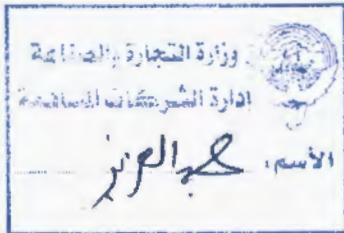 وزارة التجارة والصناعة
إدارة الشركات المساهمة
الأسم: عبدالعزيز